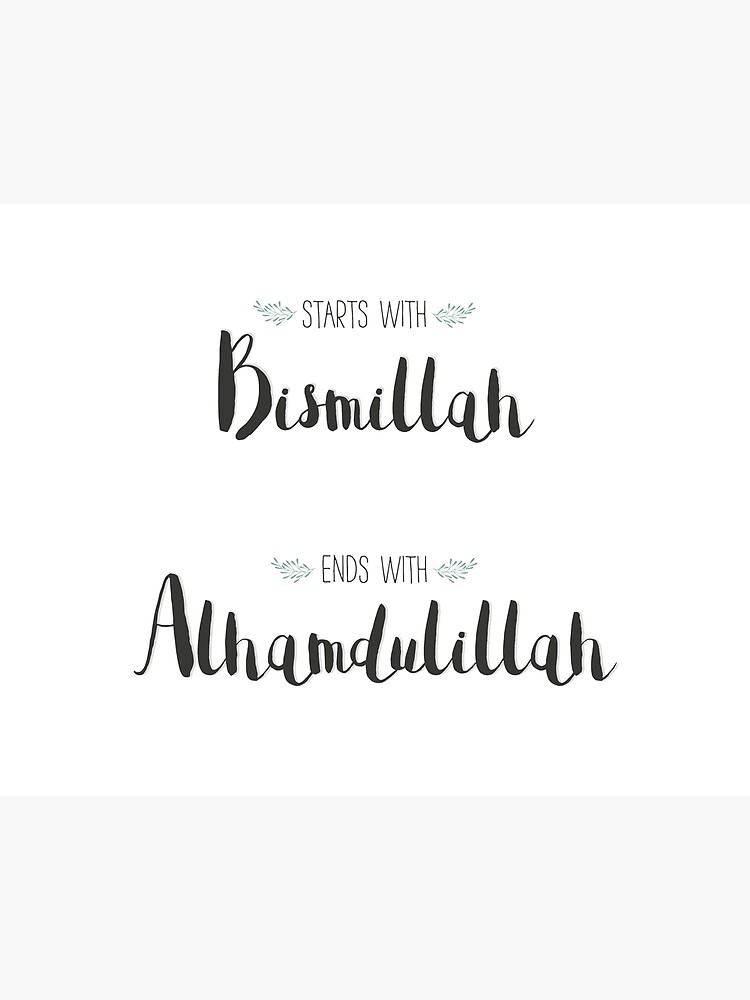 STARTS WITH
Bismillah
ENDS WITH
Alhamdulillah